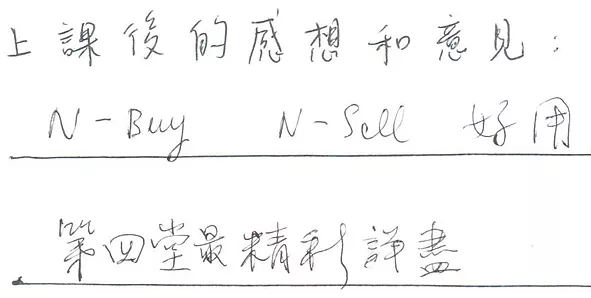 上課後的感想和意見：
N-Buy N-Sell 好用
第四堂最精彩詳盡